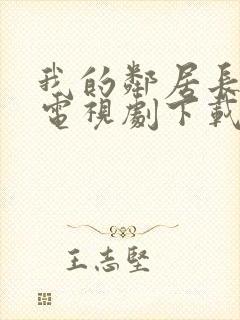 我的鄰居長
電視劇下載
王志堅